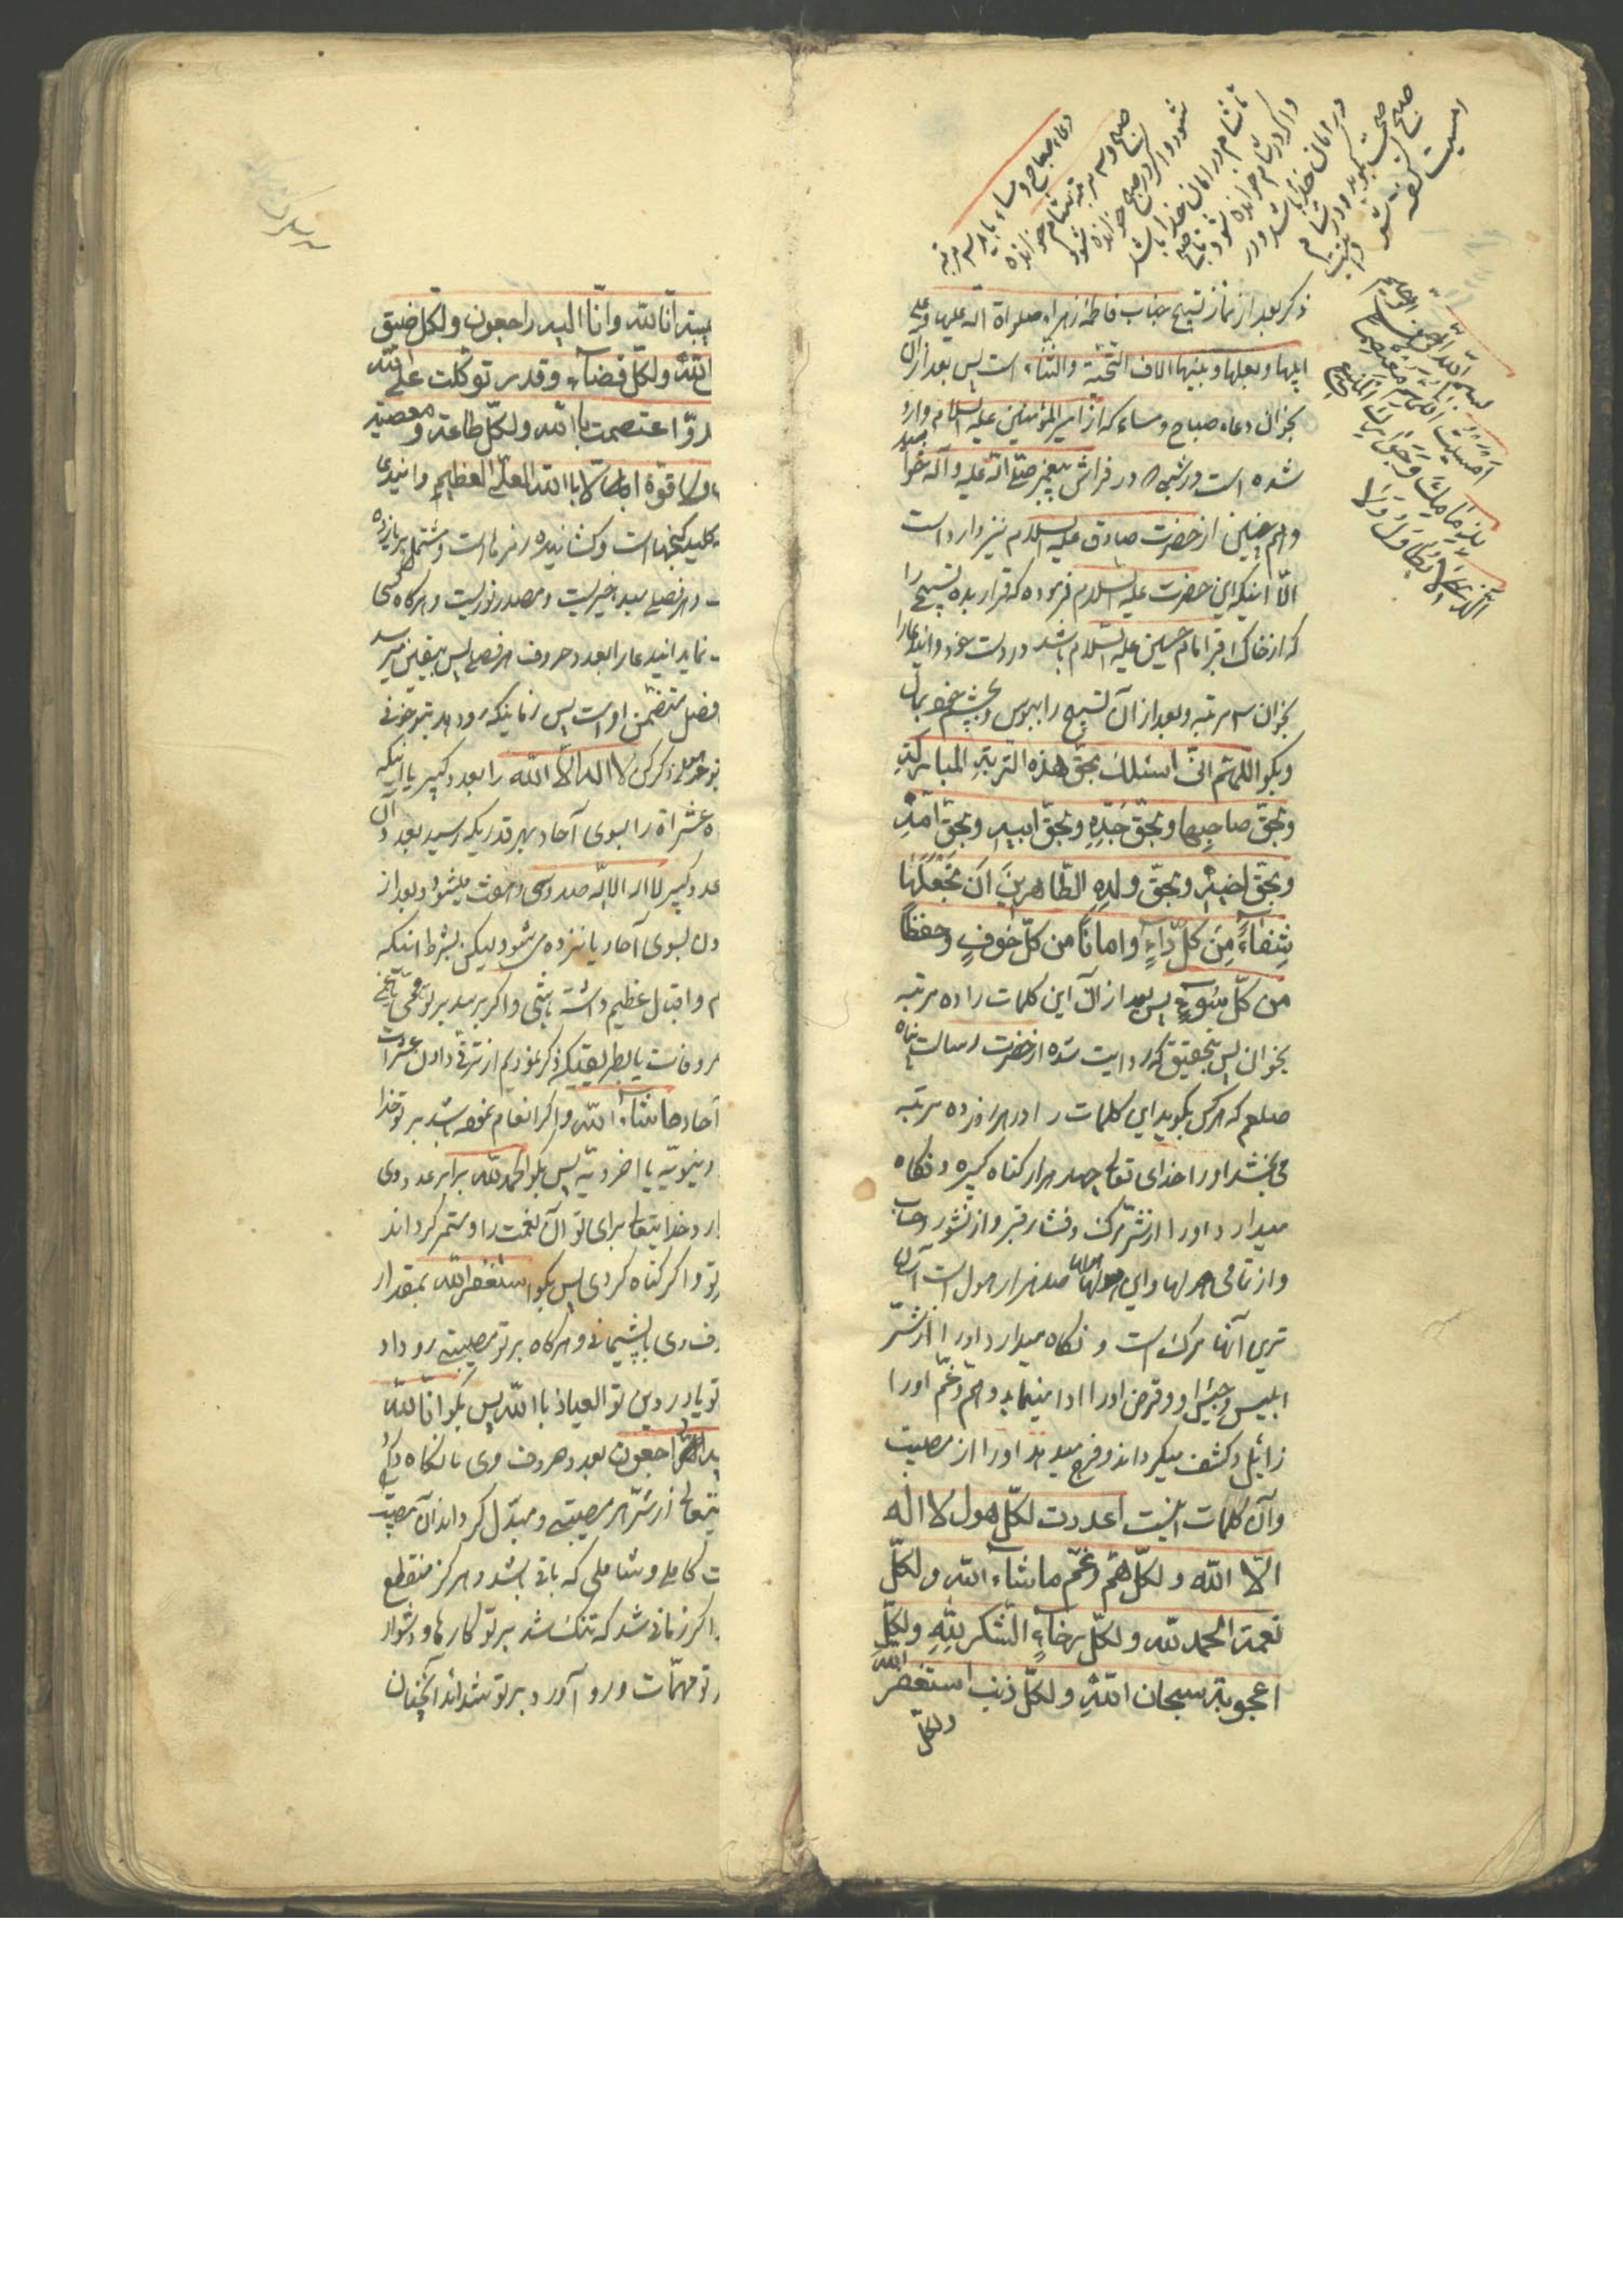 دعاء صباح و مساء باید سه مرتبه
صبح و سه مرتبه شام خوانده
شود و اگر در صبح خوانده شود
تا شام در امان خدا باشد
و اگر در شام خوانده شود تا صبح
در امان خدا باشد و در
صبح بگوید و در شام
امسیت
بسم الله الرحمن الرحیم
اَصبَحتُ اللّهم مُعتَصِماً
بِذِمامِکَ وَجِوارِکَ المَنیع
الَّذی لا یُطاوَلُ وَلا
ذکر بعد از نماز تسبیح جناب فاطمه زهراء صلواة الله علیها وعلی
ابیها و بعلها و بنیها الاف التحیّة والثناء است پس بعد از ان
بخوان دعاء صباح و مساء که از امیر المؤمنین علیه السلام وارد
شده است در شبیکه در فراش پیغمبر صلّی الله علیه و آله خوابید
و همچنین از حضرت صادق علیه السلام نیز وارد است
الّا اینکه این حضرت علیه السلام فرموده که قرار بده تسبیح را
که از خاک قبر امام حسین علیه السلام باشد در دست خود و این دعا را
بخوان سه مرتبه و بعد از آن تسبیح را ببوس و بچشم خود بمال
و بکو اللّهم انّی اسئلک بحقّ هذه التربةِ المبارکةِ
وبحقّ صاحِبِها وبحقّ جَدِّهِ وبحقّ ابیهِ وبحقّ اُمّهِ
وبحقّ اخیهِ وبحقّ ولدِهِ الطّاهرینَ اَن تَجعَلَها
شِفاءً مِن کلّ داءٍ واماناً من کلّ خوفٍ وحفظاً
من کلّ سُوءٍ پس بعد از آن این کلمات را ده مرتبه
بخوان پس بتحقیق که روایت شده از حضرت رسالت پناه
صلعم که هر کس بکوید این کلمات را در هر روز ده مرتبه
می بخشد او را خدای تعالی چهار هزار کناه کبیره و نکاه
میدارد او را از شرّ مرک و فشار قبر و از نشور و حساب
و از تمامی هولها و این هولها صد هزار هول است آسان
ترین آنها مرک است و نکاه میدارد او را از شرّ
ابلیس و جیش او و قرض او را ادا مینماید و همّ و غمّ او را
زائل و کشف میکرداند و فرج میدهد او را از مصیبت
و آن کلمات اینست اعددت لکلّ هول لا اله
الّا الله ولکلّ همّ وغمّ ماشاء الله ولکلّ
نعمة الحمد لله ولکلّ رخاءٍ الشکر لِلّهِ ولکلّ
اعجوبة سبحان اللهِ ولکلّ ذنب استغفر الله
ولکلّ
یبة انّا لله وانّا الیه راجعون ولکلّ ضیق
الله ولکلّ قضاء وقدر توکّلت علی الله
دوّ اعتصمت باالله ولکلّ طاعة ومعصیة
قوّة الّا باالله العلیّ العظیم و این دعای
کلید کنجهاست و کشاینده رمزهاست و مشتمل بر یازده
و هر فصلی مبدء خیریست و مصدر نوریست و هر کاه کسی
نماید این دعا را بعدد حروف هر فصلی پس بیقین میرسد
فصل متضمّن اوست پس زمانیکه رو دهد بتو خوفی
ذکر کن لا اله الّا الله را بعدد کبیر یا اینکه
عشراة را بسوی آحاد بهر قدریکه رسید بعدد آن
عدد کبیر لا اله الا الله صد و سی و هفت میشود و بعد از
دن بسوی آحاد یازده می شود لیکن بشرط اینکه
و اقبال عظیم داشته باشی و اکر برسد بر تو غمّی
یا بطریقیکه ذکر نمودیم از ترقی دادن عشرات
آحاد ماشاء الله و اکر انعام نموده باشد بر تو خدا
دنیویّه یا اخرویّه پس بکو الحمد لله برابر عدد وی
ارد خدا بتعالی برای تو آن نعمت را و مستمر کرداند
تو و اکر کناه کردی پس بکو استغفر الله بمقدار
وی با پشیمانی و هر کاه بر تو مصیبتی رو داد
تو یا در دین تو العیاذ باالله پس بکو انّا لله
راجعون بعدد حروف وی تا نکاه دارد
از شرّ هر مصیبتی و مبدّل کرداند آن مصیبت
کاملی و شاملی که باقی باشد و هر کز منقطع
اکر زمانی شد که تنک شد بر تو کارها و دشوار
تو مهمّات و رو آورد بر تو شداند آنچنان